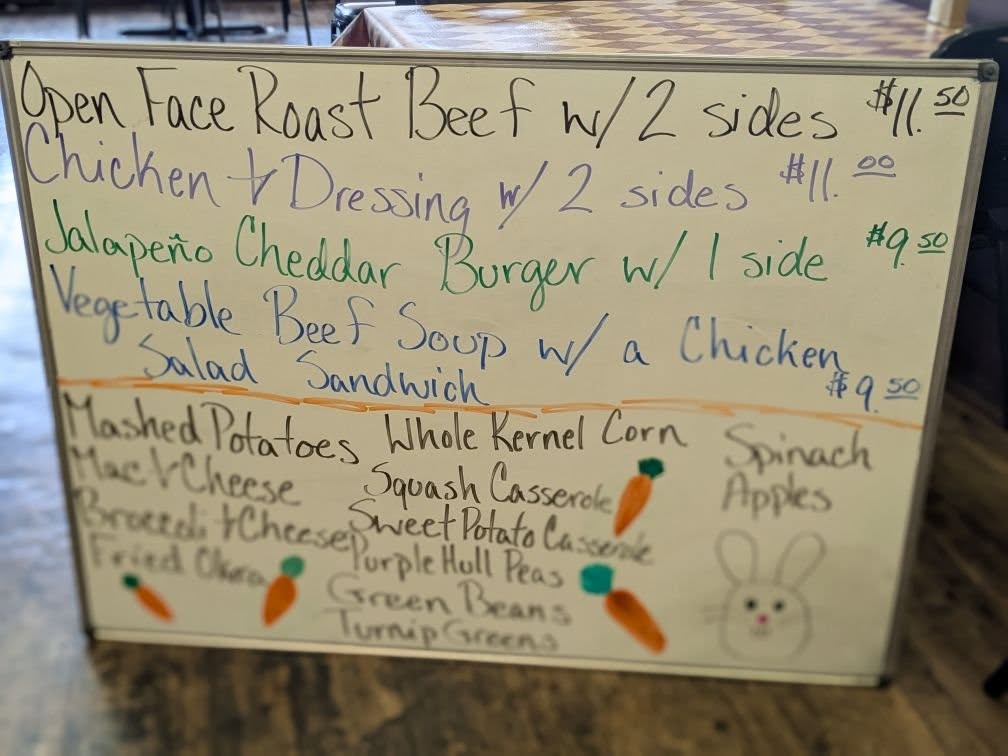 Open Face Roast Beef w/ 2 sides $11.50
Chicken + Dressing w/ 2 sides $11.00
Jalapeño Cheddar Burger w/ 1 side $9.50
Vegetable Beef Soup w/ a Chicken
Salad Sandwich $9.50
Mashed Potatoes
Mac + Cheese
Broccoli + Cheese
Fried Okra
Whole Kernel Corn
Squash Casserole
Sweet Potato Casserole
Purple Hull Peas
Green Beans
Turnip Greens
Spinach
Apples